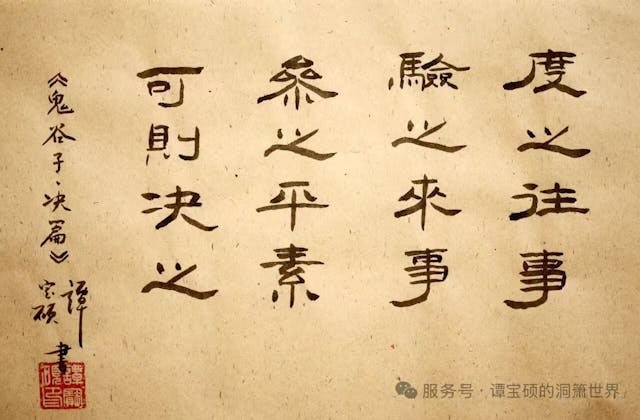 度之往事
驗之來事
參之平素
可則决之
《鬼谷子·决篇》
譚宝硕書
服务号·谭宝硕的洞箫世界